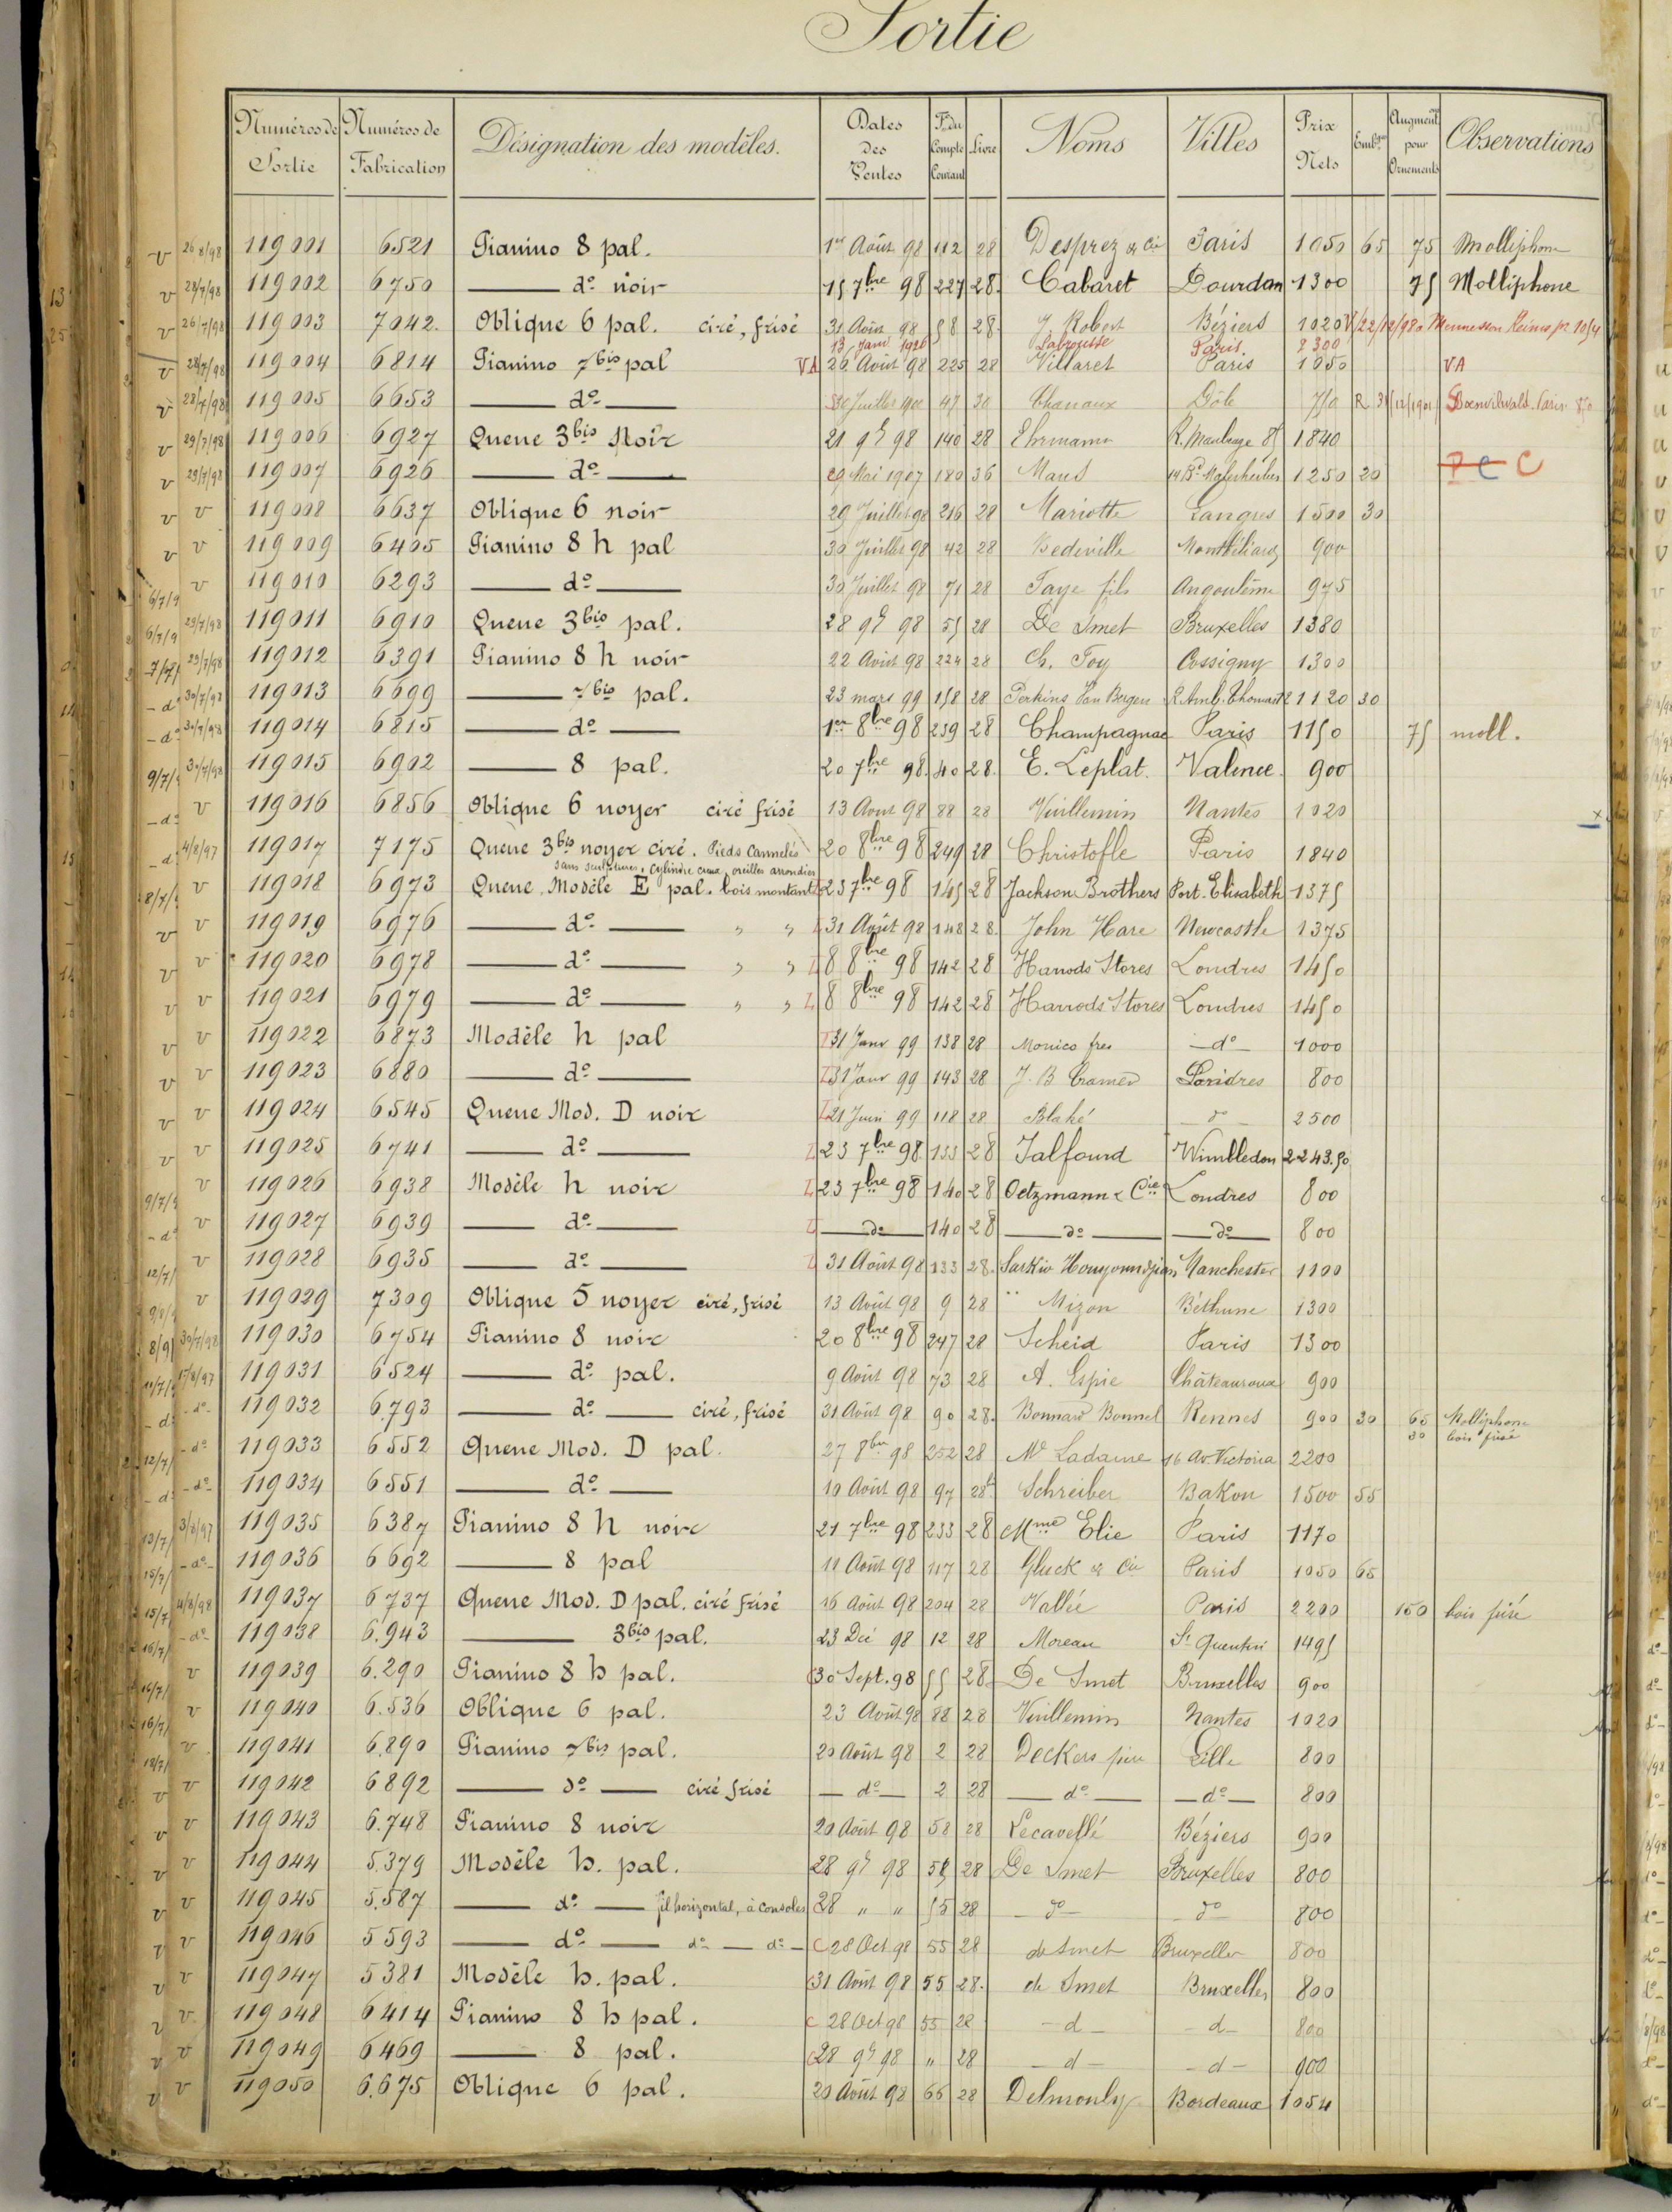 Sortie
Numéros de Sortie | Numéros de Fabrication | Désignation des modèles. | Dates des Ventes | Fo du Compte Courant | Livre | Noms | Villes | Prix Nets | Embge | Augmentn pour Ornements | Observations
v 26/8/98 119001 6521 Pianino 8 pal. 1er Août 98 112 28 Desprez & Cie Paris 1050 65 75 Molliphone
v 28/7/98 119002 6750 do noir 15 7bre 98 227 28. Cabaret Dourdan 1300 75 Molliphone
v 26/7/98 119003 7042. Oblique 6 pal. ciré, frisé 31 Août 98 58 28. J. Robert Béziers 1020 22/12/98 Mennesson Reims
13 Janv 1926 Labrousse Paris
v 28/7/98 119004 6814 Pianino 7bis pal VA 26 Août 98 225 28 Villaret Paris 1050 VA
v 28/7/98 119005 6653 do 30 Juillet 1900 47 30 Chanaux Dôle 750 R 31/12/1901 Paris
v 29/7/98 119006 6927 Queue 3bis Noir 21 9b 98 140 28 Ehrmann R. Maubeuge 1840
v 29/7/98 119007 6926 do 29 Mai 1907 180 36 Maus Bd Malesherbes 1250 20 C
v v 119008 6637 Oblique 6 noir 29 Juillet 98 216 28 Mariotte Langres 1500 30
v v 119009 6405 Pianino 8 h pal 30 Juillet 98 42 28 Bedeville Montbéliard 900
v 119010 6293 do 30 Juillet 98 71 28 Faye fils Angoulême 975
29/7/98 119011 6910 Queue 3bis pal. 28 9b 98 55 28 De Smet Bruxelles 1380
29/7/98 119012 6391 Pianino 8 h noir 22 Août 98 224 28 Ch. Foy Cossigny 1300
30/7/98 119013 6699 7bis pal. 23 mars 99 158 28 Perkins Van Bergen R. Amb. Thomas 2 1120 30
30/7/98 119014 6815 do 1er 8bre 98 239 28 Champagnac Paris 1150 75 moll.
30/7/98 119015 6902 8 pal. 20 7bre 98. 40 28. E. Leplat. Valence. 900
v 119016 6856 Oblique 6 noyer ciré frisé 13 Août 98 88 28 Vuillemin Nantes 1020
4/8/97 119017 7175 Queue 3bis noyer ciré. Pieds Cannelés 20 8bre 98 249 28 Christofle Paris 1840
sans sculptures, Cylindre creux, oreilles arrondies
v 119018 6973 Queue Modèle E pal. bois montant 23 7bre 98 145 28 Jackson Brothers Port. Elisabeth 1375
v v 119019 6976 do " " L 31 Août 98 148 28. John Hare Newcastle 1375
v v 119020 6978 do " " L 8 8bre 98 142 28 Harrods Stores Londres 1450
v v 119021 6979 do " " L 8 8bre 98 142 28 Harrods Stores Londres 1450
v v 119022 6873 Modèle h pal L 31 Janv 99 138 28 Monico fres do 1000
v v 119023 6880 do L 31 Janv 99 143 28 J. B Cramer Londres 800
v v 119024 6545 Queue Mod. D noir L 21 Juin 99 118 28 Blaké do 2500
v v 119025 6741 do L 23 7bre 98 133 28 Talfourd Wimbledon 2243.50
v 119026 6938 Modèle h noir L 23 7bre 98 140 28 Oetzmann & Cie Londres 800
v 119027 6939 do L do 140 28 do do 800
v 119028 6935 do L 31 Août 98 133 28. Sarkis Manchester 1100
v 119029 7309 Oblique 5 noyer ciré, frisé 13 Août 98 9 28 Mizon Béthune 1300
30/7/98 119030 6754 Pianino 8 noir 20 8bre 98 247 28 Scheid Paris 1300
17/8/97 119031 6524 do pal. 9 Août 98 73 28 A. Espie Châteauroux 900
-do- 119032 6.793 do ciré, frisé 31 Août 98 90 28. Bonnard Bonnel Rennes 900 30 65 Molliphone
30 bois frisé
-do 119033 6552 Queue Mod. D pal. 27 8bre 98 252 28 Mr Ladame 16 Av. Victoria 2200
-do- 119034 6551 do 10 Août 98 97 28 Schreiber Bakou 1500 55
3/8/97 119035 6387 Pianino 8 h noir 21 7bre 98 233 28 Mme Elie Paris 1170
-do- 119036 6692 8 pal 11 Août 98 117 28 Gluck & Cie Paris 1050 65
4/8/98 119037 6737 Queue Mod. D pal. ciré frisé 16 Août 98 204 28 Vallée Paris 2200 150 bois frisé
-do- 119038 6.943 3bis pal. 23 Déc 98 12 28 Moreau St Quentin 1495
v 119039 6.290 Pianino 8 h pal. 30 Sept. 98 55 28. De Smet Bruxelles 900
v 119040 6.536 Oblique 6 pal. 23 Août 98 88 28 Vuillemin Nantes 1020
v 119041 6.890 Pianino 7bis pal. 20 Août 98 2 28 Deckers père Lille 800
v v 119042 6892 do ciré frisé do 2 28 do do 800
v v 119043 6.748 Pianino 8 noir 20 Août 98 58 28 Lecavellé Béziers 900
v v 119044 5.379 Modèle h. pal. 28 9b 98 55 28 De Smet Bruxelles 800
v v 119045 5.587 do fil horizontal, à consoles 28 " " 55 28 do do 800
v v 119046 5593 do do do C 28 Oct 98 55 28 de Smet Bruxelles 800
v v 119047 5381 Modèle h. pal. 31 Août 98 55 28. de Smet Bruxelles 800
v v 119048 6414 Pianino 8 h pal. C 28 Oct 98 55 28 d d 800
v v 119049 6469 8 pal. 28 9b 98 " 28 d d 900
v v 119050 6.675 Oblique 6 pal. 20 Août 98 65 28 Delmouly Bordeaux 1054